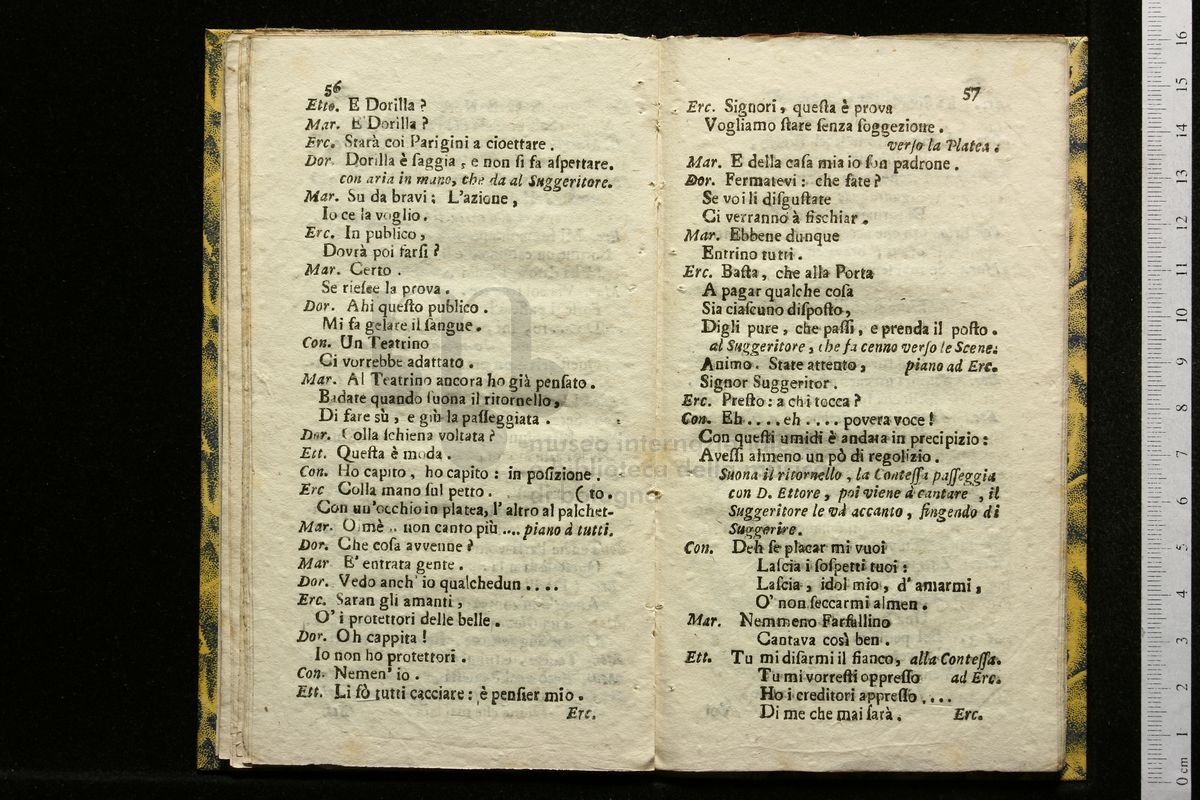 56
Etto. E Dorilla ?
Mar. E Dorilla ?
Erc. Starà coi Parigini a cioettare .
Dor. Dorilla è ſaggia , e non ſi fa aſpettare.
con aria in mano, che da al Suggeritore.
Mar. Su da bravi ; L'azione ,
Io ce la voglio .
Erc. In publico ,
Dovrà poi farſi ?
Mar. Certo .
Se rieſce la prova .
Dor. Ahi queſto publico .
Mi fa gelare il ſangue .
Con. Un Teatrino
Ci vorrebbe adattato .
Mar. Al Teatrino ancora ho già penſato .
Badate quando ſuona il ritornello ,
Di fare sù , e giù la paſſeggiata .
Dor. Colla ſchiena voltata ?
Ett. Queſta è moda .
Con. Ho capito , ho capito : in poſizione .
Erc Colla mano ſul petto . ( to .
Con un'occhio in platea, l' altro al palchet-
Mar. Oimè .. non canto più .... piano à tutti.
Dor. Che coſa avvenne ?
Mar E' entrata gente .
Dor. Vedo anch' io qualchedun ....
Erc. Saran gli amanti ,
O' i protettori delle belle .
Dor. Oh cappita !
Io non ho protettori .
Con. Nemen' io .
Ett. Li fò tutti cacciare : è penſier mio .
Erc.
57
Erc. Signori , queſta è prova
Vogliamo ſtare ſenza ſoggezione .
verſo la Platea .
Mar. E della caſa mia io ſon padrone .
Dor. Fermatevi : che fate ?
Se voi li diſguſtate
Ci verranno à fiſchiar .
Mar. Ebbene dunque
Entrino tutti .
Erc. Baſta , che alla Porta
A pagar qualche coſa
Sia ciaſcuno diſpoſto ,
Digli pure , che paſſi , e prenda il poſto .
al Suggeritore , che fa cenno verſo le Scene.
Animo . State attento , piano ad Erc.
Signor Suggeritor .
Erc. Preſto : a chi tocca ?
Con. Eh .... eh .... povera voce !
Con queſti umidi è andata in precipizio :
Aveſſi almeno un pò di regolizio .
Suona il ritornello , la Conteſſa paſſeggia
con D. Ettore , poi viene à cantare , il
Suggeritore le và accanto , fingendo di
Suggerire.
Con. Deh ſe placar mi vuoi
Laſcia i ſoſpetti tuoi :
Laſcia , idol mio , d' amarmi ,
O' non ſeccarmi almen .
Mar. Nemmeno Farfallino
Cantava così ben .
Ett. Tu mi diſarmi il fianco , alla Conteſſa.
Tu mi vorreſti oppreſſo ad Erc.
Ho i creditori appreſſo ....
Di me che mai ſarà . Erc.